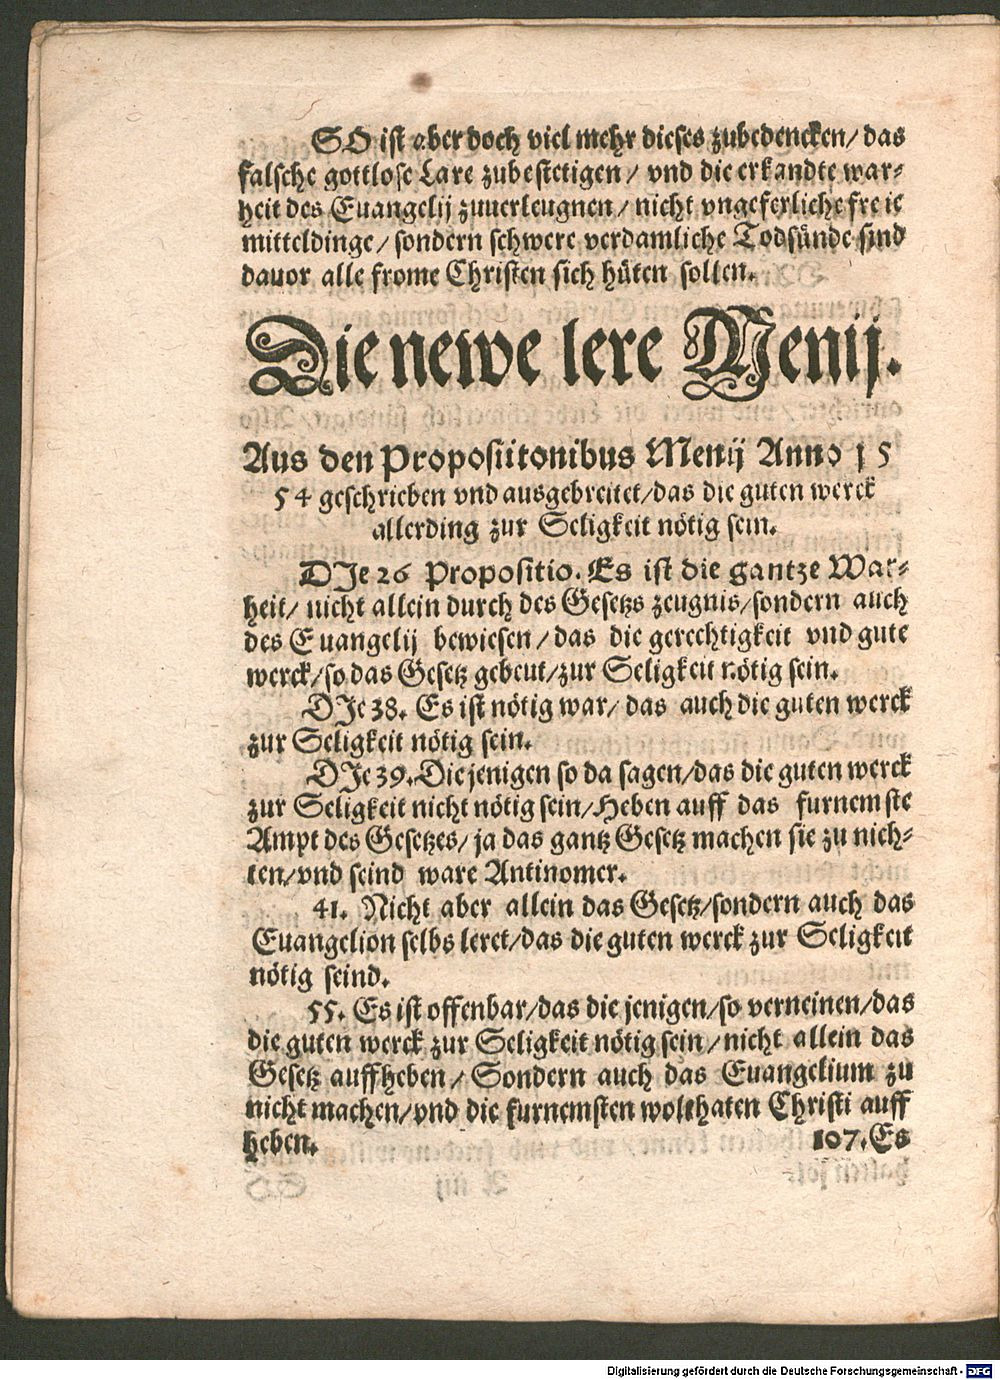 SO ist aber doch viel mehr dieses zubedencken/ das
falsche gottlose Lare zubestetigen/ vnd die erkandte war-
heit des Euangelij zuuerleugnen/ nicht vngeferliche freie
mitteldinge/ sondern schwere verdamliche Todsünde sind
dauor alle frome Christen sich hüten sollen.
Die newe lere Menij.
Aus den Propositionibus Menij Anno 15
54 geschrieben vnd ausgebreitet/das die guten werck
allerding zur Seligkeit nötig sein.
DIe 26 Propositio. Es ist die gantze War-
heit/ nicht allein durch des Gesetzs zeugnis/sondern auch
des Euangelij bewiesen/das die gerechtigkeit vnd gute
werck/so das Gesetz gebeut/zur Seligkeit nötig sein.
DIe 38. Es ist nötig war/ das auch die guten werck
zur Seligkeit nötig sein.
DIe 39. Die jenigen so da sagen/das die guten werck
zur Seligkeit nicht nötig sein/Heben auff das furnemste
Ampt des Gesetzes/ ja das gantz Gesetz machen sie zu nich-
ten/vnd seind ware Antinomer.
41. Nicht aber allein das Gesetz/sondern auch das
Euangelion selbs leret/das die guten werck zur Seligkeit
nötig seind.
55. Es ist offenbar/das die jenigen/so verneinen/das
die guten werck zur Seligkeit nötig sein/nicht allein das
Gesetz auffheben/ Sondern auch das Euangelium zu
nicht machen/vnd die furnemsten wolthaten Christi auff
heben. 107. Es
Digitalisierung gefördert durch die Deutsche Forschungsgemeinschaft - DFG